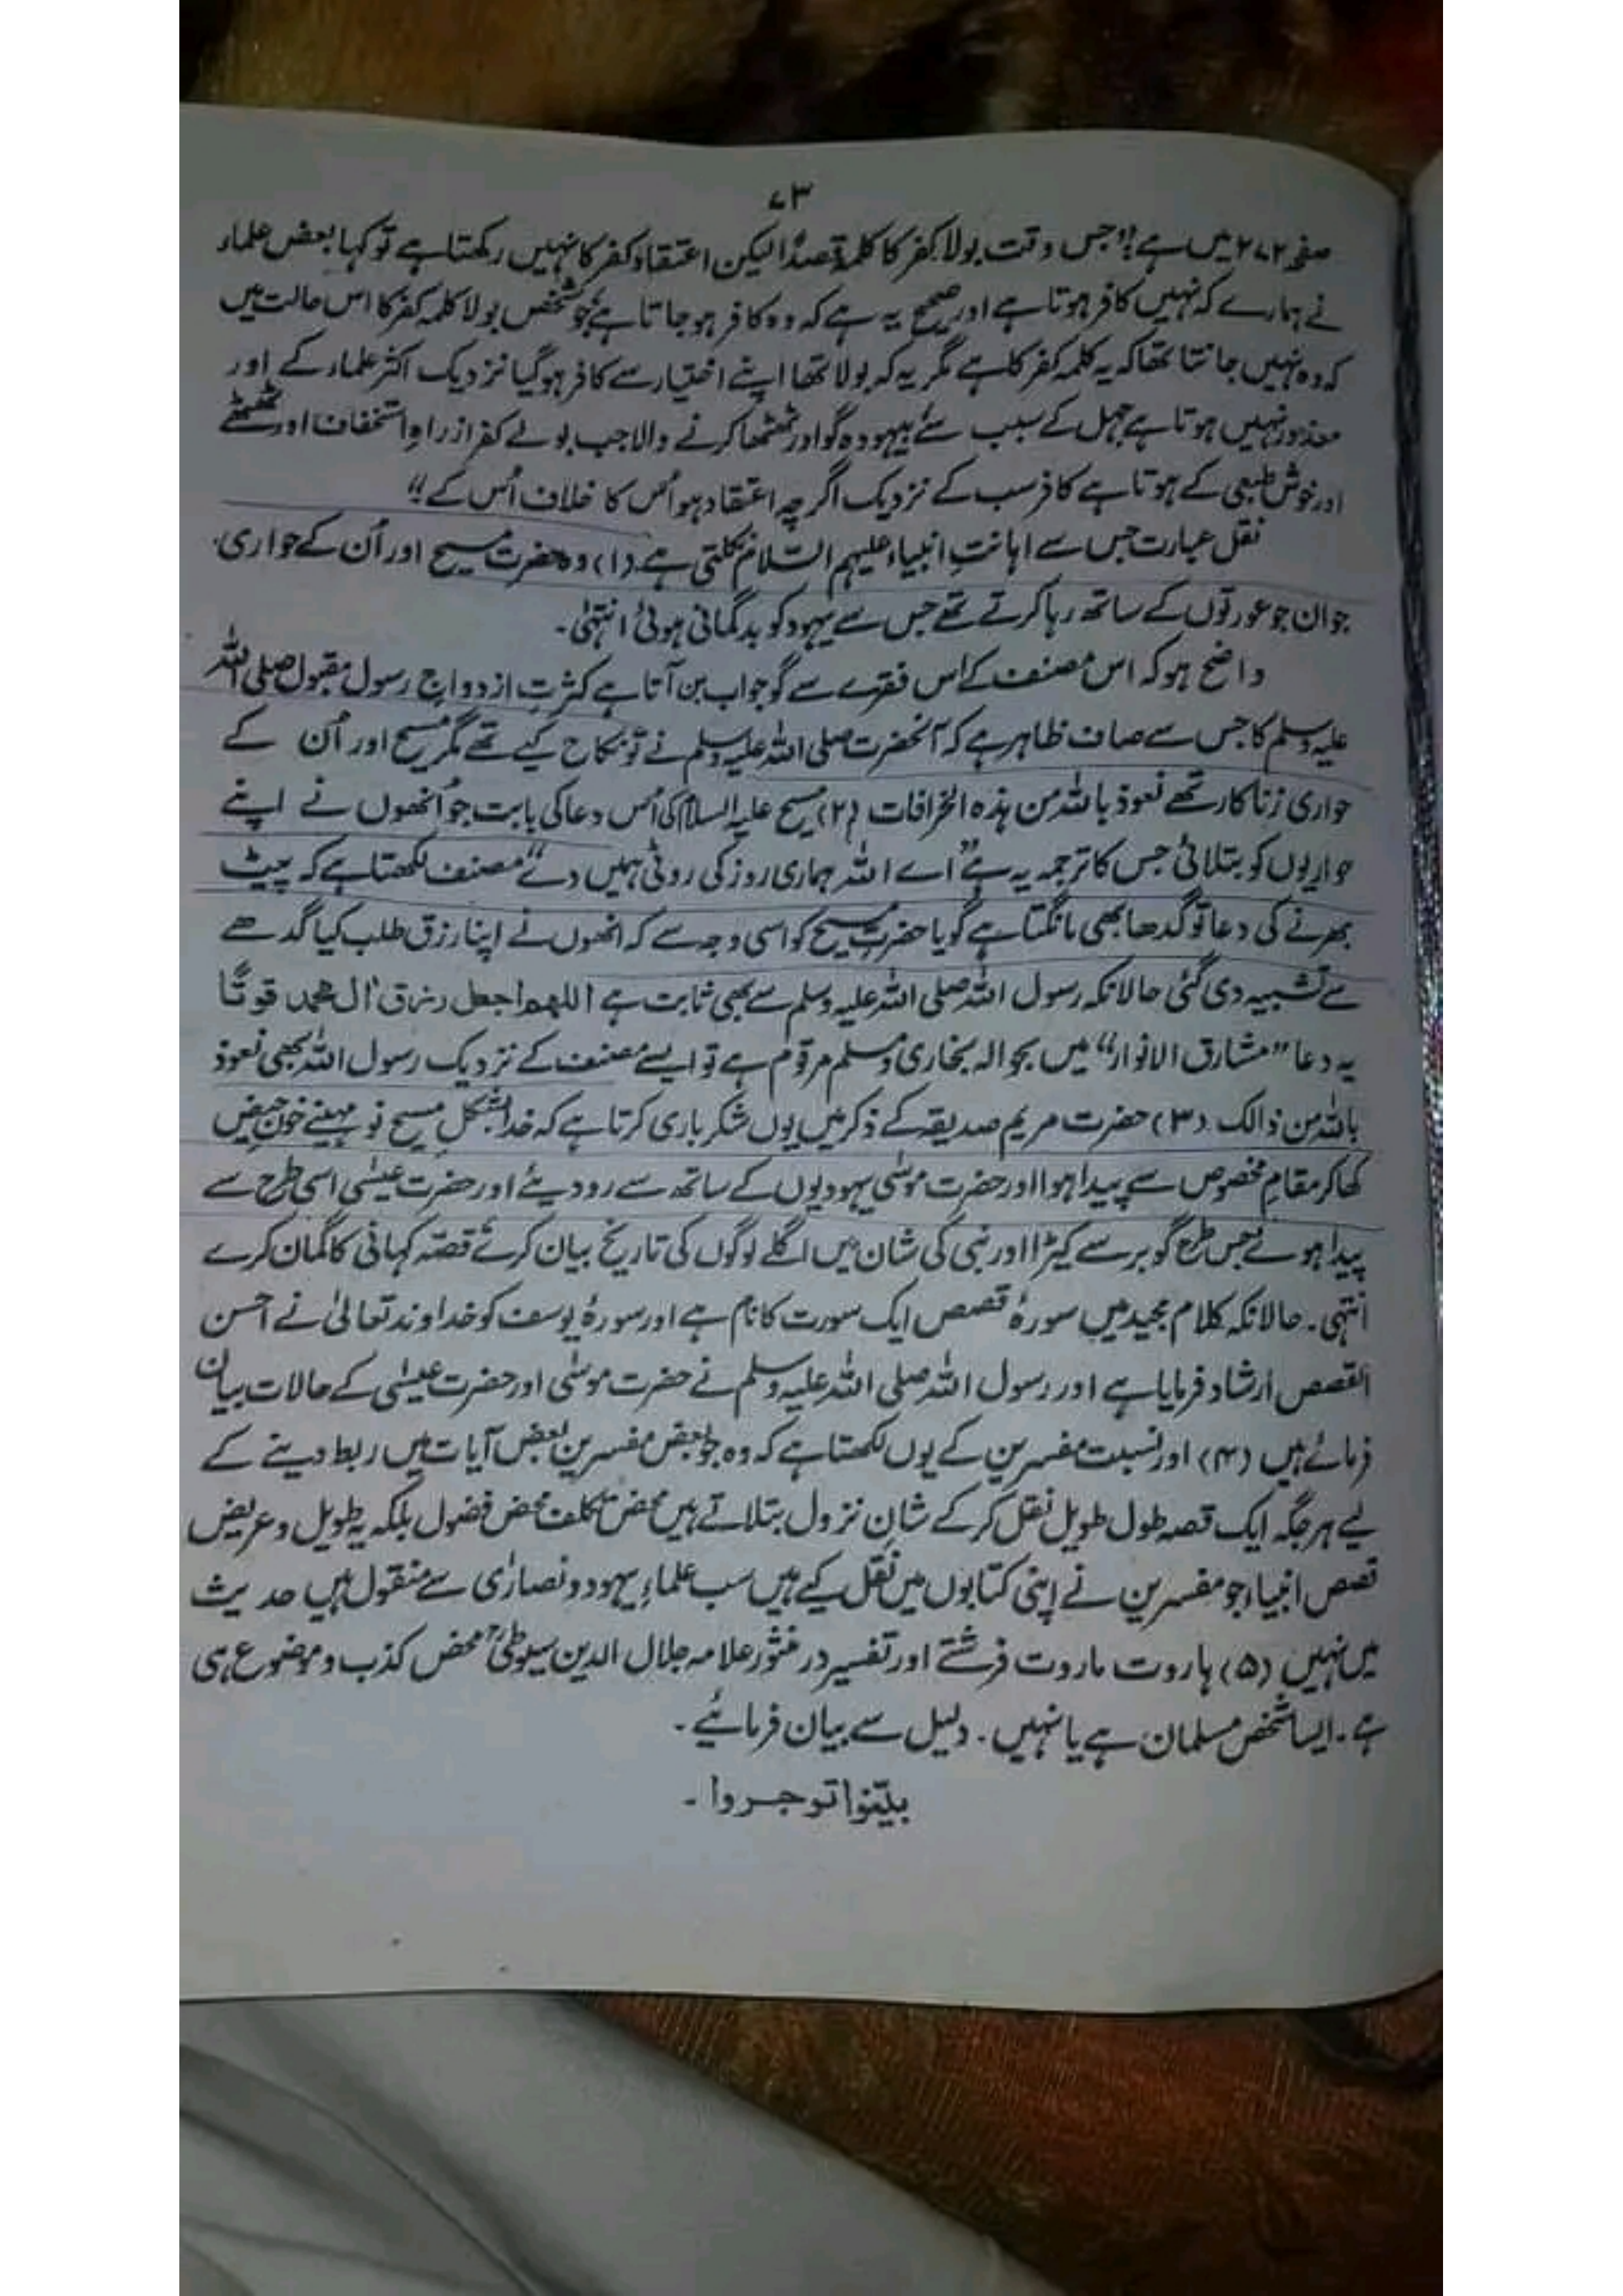 ۷۳
صفحہ ۲۷۲ میں ہے؛ "جس وقت بولا کفر کا کلمہ قصداً لیکن اعتقاد کفر کا نہیں رکھتا ہے تو کہا بعض علماء
نے ہمارے کہ نہیں کافر ہوتا ہے اور صحیح یہ ہے کہ وہ کافر ہو جاتا ہے جو شخص بولا کلمہ کفر کا اس حالت میں
کہ وہ نہیں جانتا تھا کہ یہ کلمہ کفر کا ہے مگر یہ کہ بولا تھا اپنے اختیار سے کافر ہو گیا نزدیک اکثر علماء کے اور
معذور نہیں ہوتا ہے جہل کے سبب سے بیہودہ گو اور ٹھٹھا کرنے والا جب بولے کفر از راہِ استخفاف اور ٹھٹھے
اور خوش طبعی کے ہوتا ہے کافر سب کے نزدیک اگرچہ اعتقاد ہو اُس کا خلاف اُس کے"
نقل عبارت جس سے اہانتِ انبیاء علیہم السّلام نکلتی ہے (۱) وہ حضرت مسیح اور اُن کے حواری
جوان جو عورتوں کے ساتھ رہا کرتے تھے جس سے یہود کو بدگمانی ہوئی انتہٰی۔
واضح ہو کہ اس مصنف کے اس فقرے سے گو جواب بن آتا ہے کثرتِ ازدواجِ رسول مقبول صلی اللہ
علیہ وسلم کا جس سے صاف ظاہر ہے کہ آنحضرت صلی اللہ علیہ وسلم نے تو نکاح کیے تھے مگر مسیح اور اُن کے
حواری زناکار تھے نعوذ باللہ من ہذہ الخرافات (۲) مسیح علیہ السلام کی اُس دعا کی بابت جو اُنھوں نے اپنے
حواریوں کو بتلائی جس کا ترجمہ یہ ہے "اے اللہ ہماری روز کی روٹی ہمیں دے" مصنف لکھتا ہے کہ پیٹ
بھرنے کی دعا تو گدھا بھی مانگتا ہے گویا حضرت مسیح کو اسی وجہ سے کہ انھوں نے اپنا رزق طلب کیا گدھے
سے تشبیہ دی گئی حالانکہ رسول اللہ صلی اللہ علیہ وسلم سے بھی ثابت ہے اللھم اجعل رزق اٰل محمد قوتًا
یہ دعا "مشارق الانوار" میں بحوالہ بخاری و مسلم مرقوم ہے تو ایسے مصنف کے نزدیک رسول اللہ بھی نعوذ
باللہ من ذالک (۳) حضرت مریم صدیقہ کے ذکر میں یوں شکر باری کرتا ہے کہ خدا بشکلِ مسیح نو مہینے خونِ حیض
کھا کر مقامِ مخصوص سے پیدا ہوا اور حضرت موسٰی یہودیوں کے ساتھ سے رو دیئے اور حضرت عیسٰی اسی طرح سے
پیدا ہوئے جس طرح گوبر سے کیڑا اور نبی کی شان میں اگلے لوگوں کی تاریخ بیان کرے قصّہ کہانی کا گمان کرے
انتہی۔ حالانکہ کلام مجید میں سورۂ قصص ایک سورت کا نام ہے اور سورۂ یوسف کو خداوند تعالیٰ نے احسن
القصص ارشاد فرمایا ہے اور رسول اللہ صلی اللہ علیہ وسلم نے حضرت موسٰی اور حضرت عیسٰی کے حالات بیان
فرمائے ہیں (۴) اور نسبت مفسرین کے یوں لکھتا ہے کہ وہ جو بعض مفسرین بعض آیات میں ربط دینے کے
لیے ہر جگہ ایک قصہ طول طویل نقل کر کے شانِ نزول بتلاتے ہیں محض تکلف محض فضول بلکہ یہ طویل و عریض
قصص انبیاء جو مفسرین نے اپنی کتابوں میں نقل کیے ہیں سب علماءِ یہود و نصارٰی سے منقول ہیں حدیث
میں نہیں (۵) ہاروت ماروت فرشتے اور تفسیر در منثور علامہ جلال الدین سیوطیؒ محض کذب و موضوع ہی
ہے۔ ایسا شخص مسلمان ہے یا نہیں۔ دلیل سے بیان فرمائیے۔
بیّنوا توجروا۔